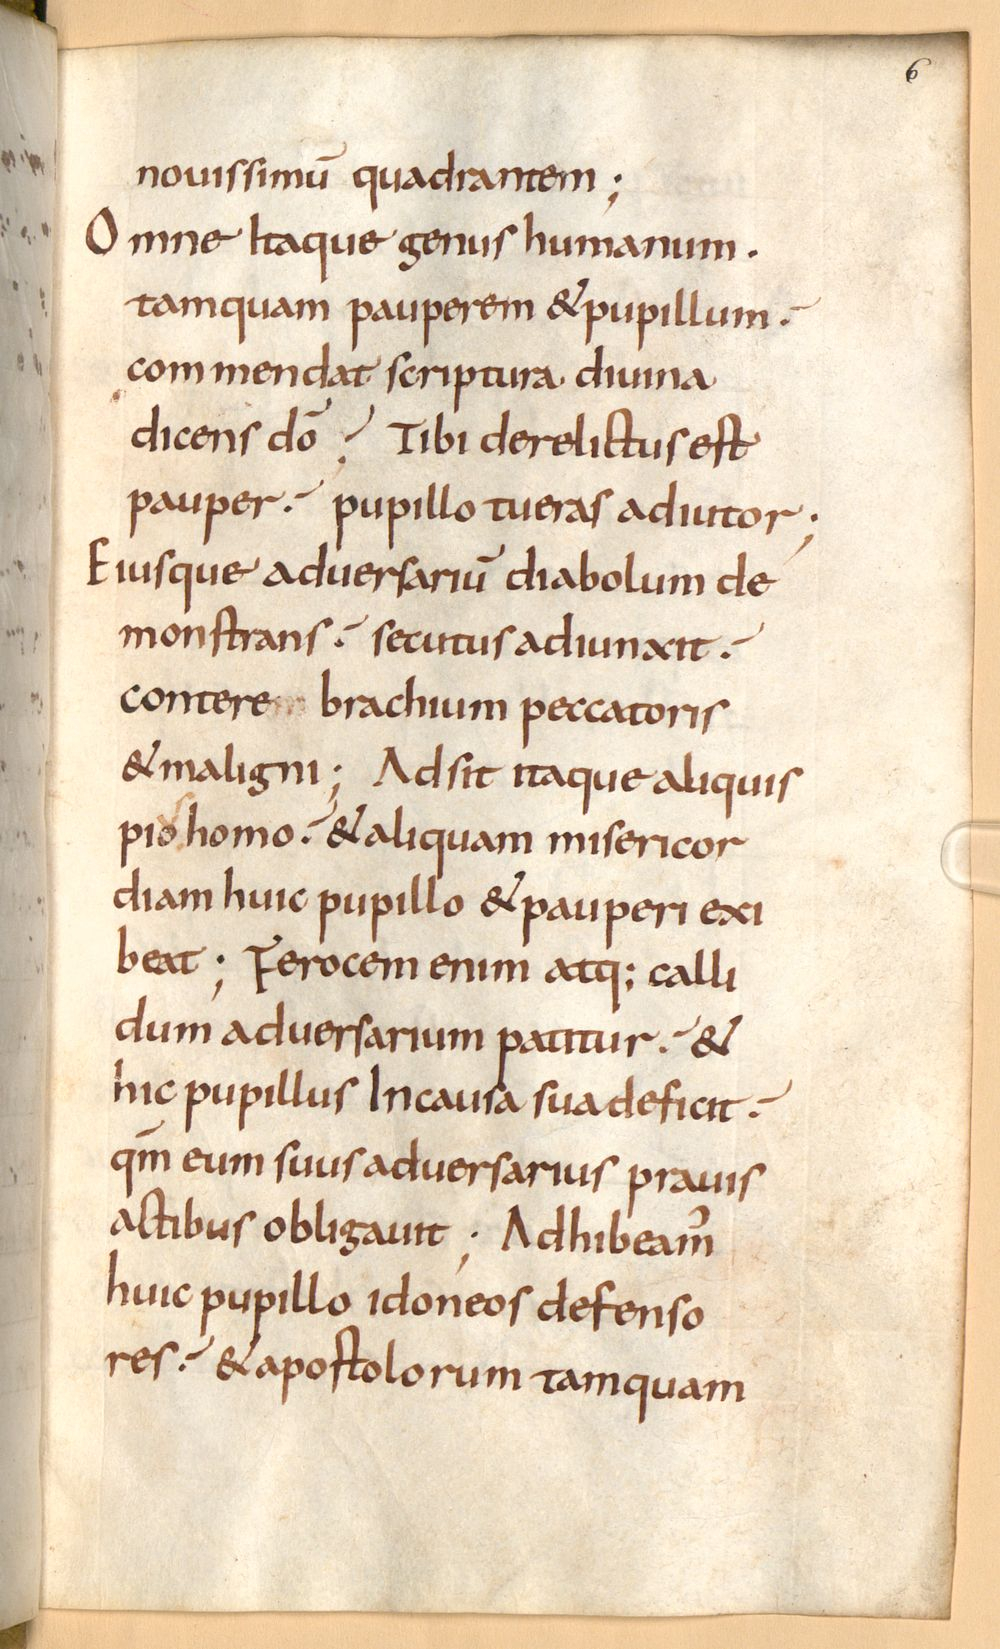 6
nouissimū quadrantem ;
Omne Itaque genus humanum .
tamquam pauperem & pupillum .
commendat scriptura diuina
dicens dō ; Tibi derelictus est
pauper . pupillo tu eras adiutor ;
Eiusque aduersariū diabolum de
monstrans . secutus adiunxit .
contere brachium peccatoris
& maligni ; Adsit itaque aliquis
pius homo . & aliquam misericor
diam huic pupillo & pauperi exi
beat ; Ferocem enim atq; calli
dum aduersarium patitur . &
hic pupillus In causa sua deficit .
qm̄ eum suus aduersarius prauis
actibus obligauit ; Adhibeam᾿
huic pupillo idoneos defenso
res . & apostolorum tamquam